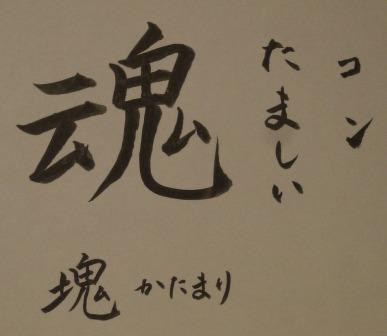 魂
コン
たましい
塊 かたまり